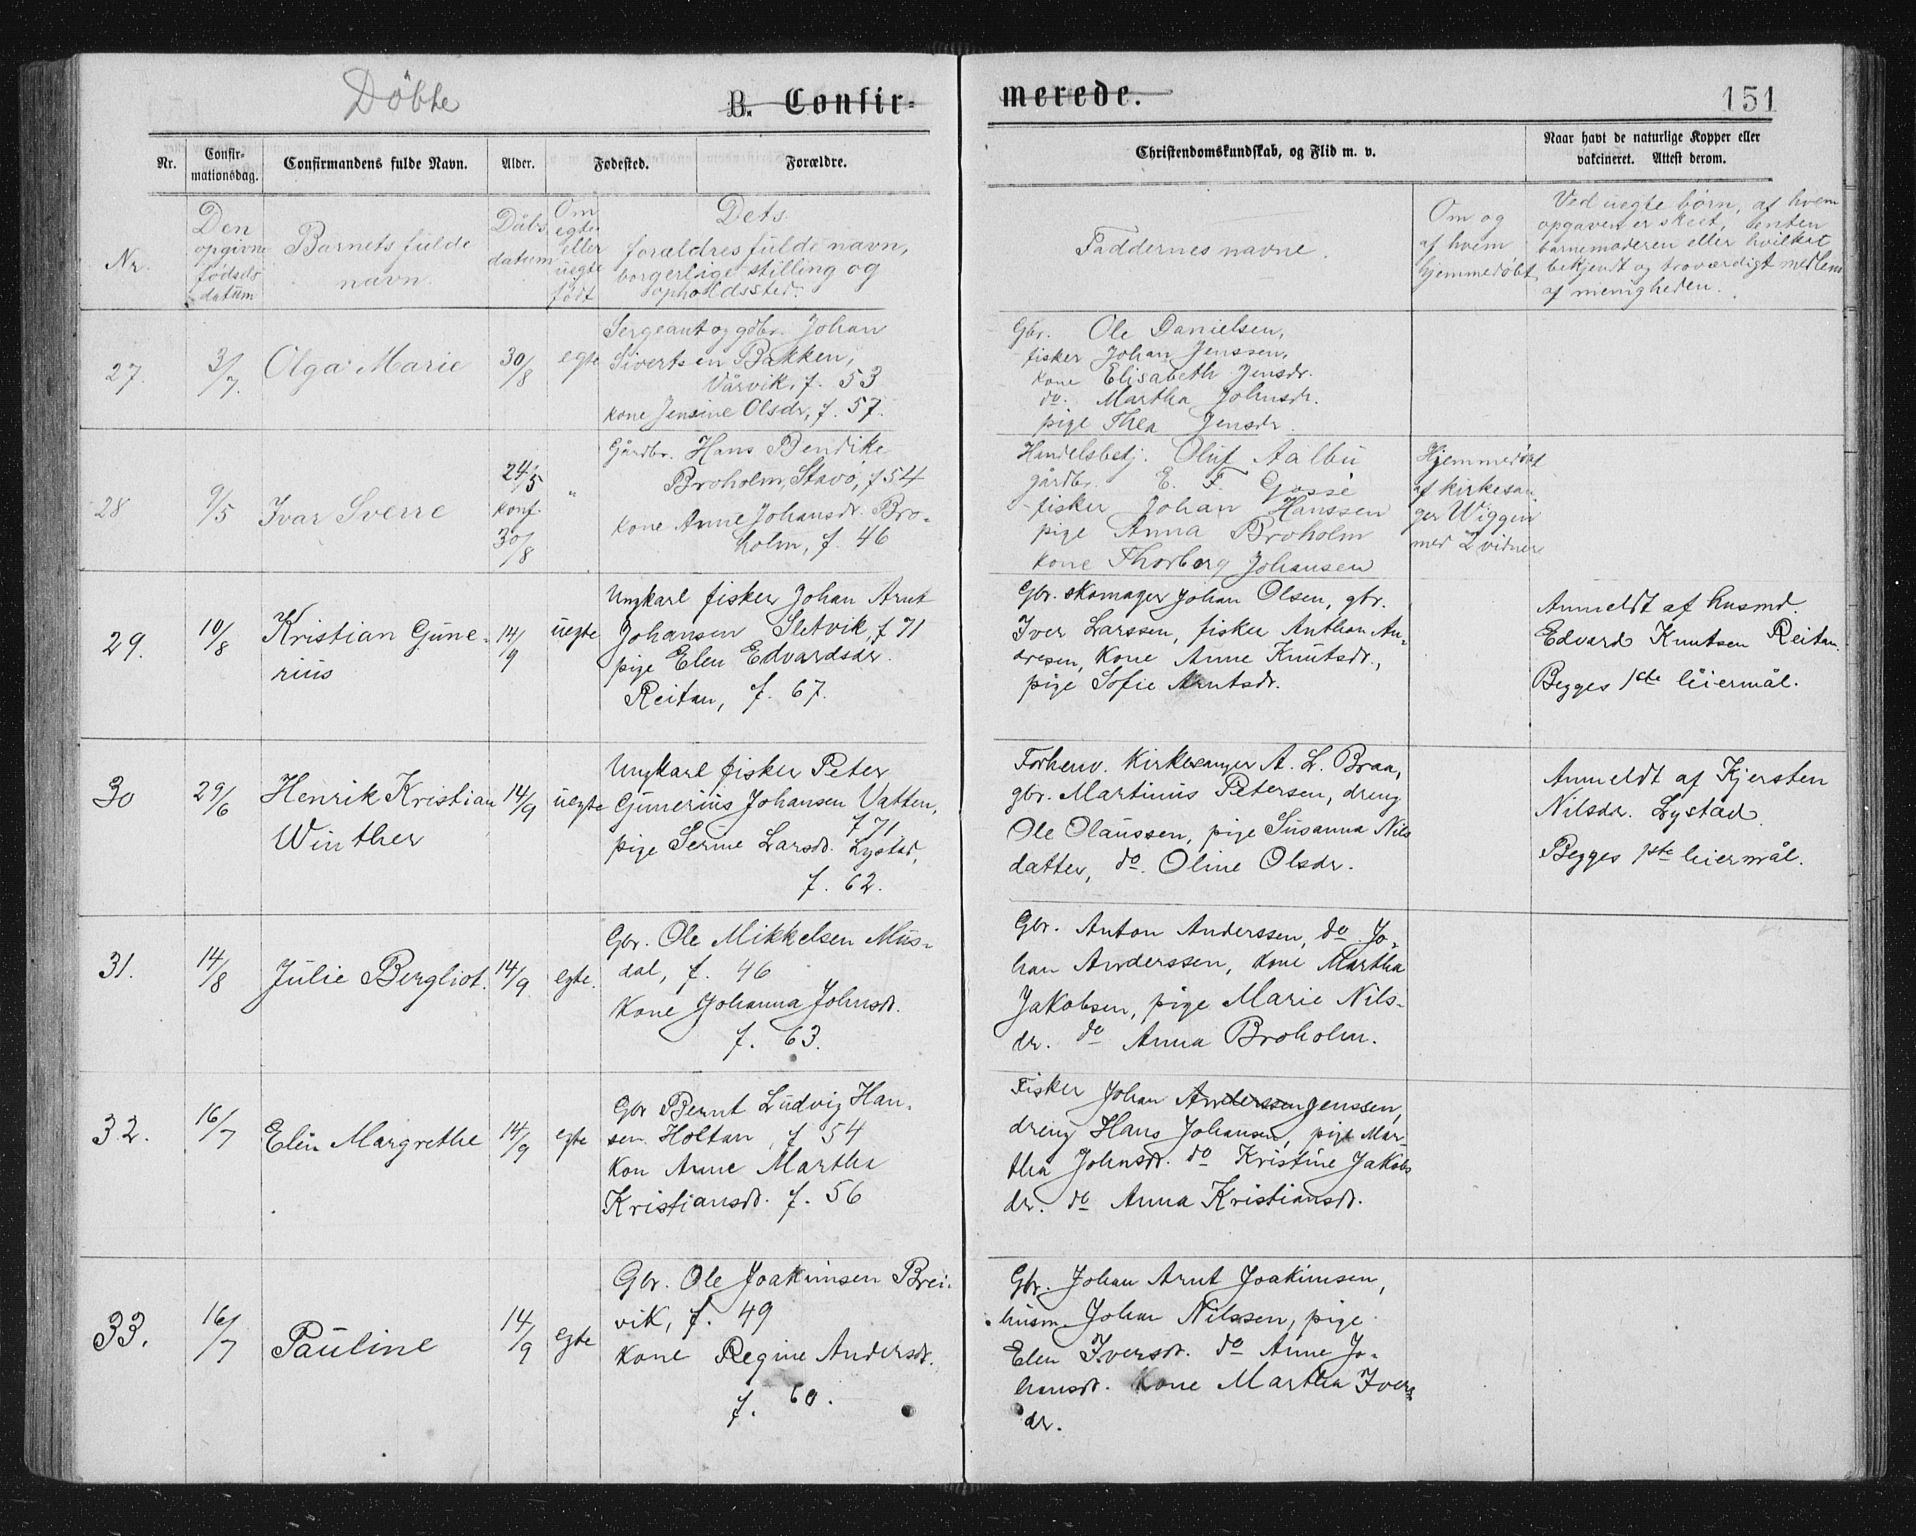 Döbte
B. Confirmerede.
151
Nr.
Confirmationsdag.
Confirmandens fulde Navn.
Alder.
Fødested.
Forældre.
Christendomskundskab, og Flid m. v.
Naar havt de naturlige Kopper eller
vakcineret. Attest derom.
Nr.
Den
opgivne
fødsels
datum
Barnets fulde
navn.
Dåbs
datum
Om
egte
eller
uegte
født
Dets
forældres fulde navn,
borgerlige stilling og
opholdssted.
Faddernes navne.
Om og
af hvem
hjemmedøbt
Ved uegte børn, af hvem
opgaven er skeet, enten
barnemoderen eller hvilket
bekjendt og troværdigt medlem
af menigheden.
27.
3/7.
Olga Marie
30/8
egte
Sergeant og gdbr. Johan
Sivertsen Bakken,
Vårvik, f. 53
kone Jensine Olsdr, f. 57.
Gbr. Ole Danielsen,
fisker Johan Jenssen,
kone Elisabeth Jensdr.
do. Martha Johnsdr.
pige Thea Jensdr.
28
9/5
Ivar Sverre
24/5
konf.
30/8
"
Gårdbr. Hans Bendike
Broholm, Stavø, f 54
kone Anne Johansdr. Bro-
holm, f. 46
Handelsbetj. Oluf Aalbu
gårdbr. E. F. Gossé
fisker Johan Hanssen
pige Anna Broholm
kone Thorborg Johansen
Hjemmedøbt
af kirkesan-
ger Wiggen
med 2 vidner
29.
10/8
Kristian Gune-
rius
14/9
uegte
Ungkarl fisker Johan Arnt
Johansen Sletvik, f 71
pige Elen Edvardsdr.
Reitan, f. 67.
Gbr. skomager Johan Olsen, gbr.
Iver Larssen, fisker Anthon An-
dresen, kone Anne Knutsdr.,
pige Sofie Arntsdr.
Anmeldt af husmd.
Edvard Knutsen Reitan.
Begges 1ste leiermål.
30
29/6
Henrik Kristian
Winther
14/9
uegte
Ungkarl fisker Peter
Gunerius Johansen Vatten,
f 71
pige Serine Larsdr. Lystad,
f. 62.
Forhenv. kirkesanger A. L. Braa,
gbr. Martinus Petersen, dreng
Ole Olaussen, pige Susanna Nils
datter, do. Oline Olsdr.
Anmeldt af Kjersten
Nilsdr. Lystad.
Begges 1ste leiermål.
31.
14/8
Julie Bergliot.
14/9
egte.
Gbr. Ole Mikkelsen Mus-
dal, f. 46
Kone Johanna Johnsdr.
f. 63.
Gbr. Anton Anderssen, do Jo-
han Anderssen, kone Martha
Jakobsen, pige Marie Nils-
dr. do Anna Broholm.
32.
16/7
Elin Margrethe
14/9
egte
Gbr Bernt Ludvig Han-
sen Holtan, f 54
Kon Anne Martha
Kristiansdr. f. 56
Fisker Johan Anderssen Jenssen,
dreng Hans Johansen, pige Mar-
tha Johnsdr. do Kristine Jakobs
dr. do Anna Kristiansdr.
33.
16/7
Pauline
14/9
egte
Gbr. Ole Joakimsen Brei-
vik, f. 49
kone Regine Andersdr.
f. 60.
Gbr. Johan Arnt Joakimsen,
husm. Johan Nilssen, pige
Elen Iversdr. do Anne Jo-
hansdr. kone Martha Ivers
dr.